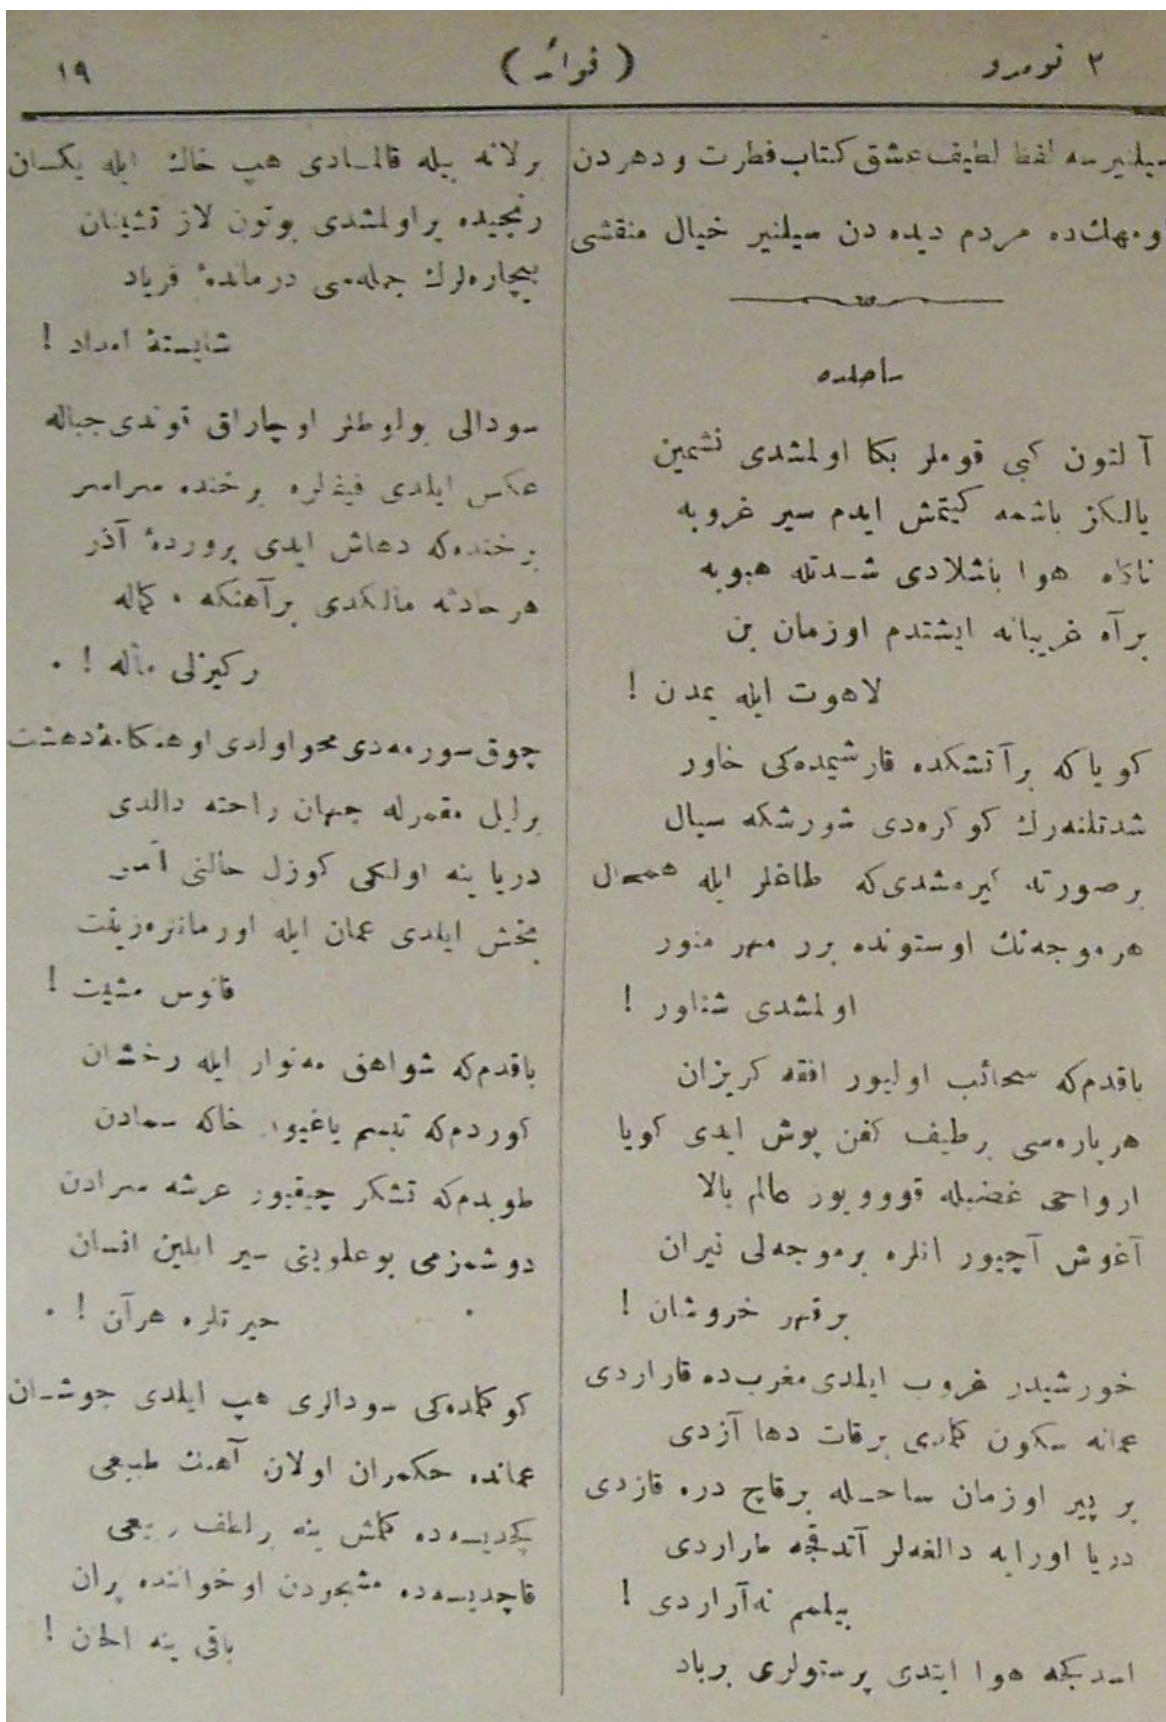 ٣ نومرو
( فوائد )
١٩
سیلنیرسه لفظ لطیف عشق کتاب فطرت و دهردن
ده مردم دیده دن سیلنیر خیال منقشی
ساحلده
آلتون کبی قوملر بکا اولمشدی نشمین
یالکز باشمه کیتمش ایدم سیر غروبه
ناکاه هوا باشلادی شدتله هبوبه
برآه غریبانه ایشتدم اوزمان بن
لاهوت ایله یمدن !
کویاکه برآتشکده قارشیمده‌کی خاور
شدتلنه‌رك کوکره‌دی شورشکه سیال
برصورته کیرمشدی‌که طاغلر ایله همحال
هرموجه‌نك اوستونده برر مهر منور
اولمشدی شناور !
باقدم‌که سحائب اولیور افقه کریزان
هرپاره‌سی برطیف کفن پوش ایدی کویا
ارواحی غضبله قووویور عالم بالا
آغوش آچیور انلره برموجه‌لی نیران
برقهر خروشان !
خورشیدر غروب ایلدی مغرب‌ده قاراردی
عمانه سکون کلدی برقات دها آزدی
بر پیر اوزمان ساحـله برقاچ دره قازدی
دریا اورایه دالغه‌لر آتدقجه طاراردی
بیلمم نه‌آراردی !
اسدکجه هوا ایتدی پرستولری برباد
برلانه بیله قالمـادی هپ خاك ایله یکـسان
رنجیده پراولمشدی بوتون لاز نشینان
بیچاره‌لرك جمله‌سی درماندهٔ فریاد
شایستهٔ امداد !
سودالی بولوطلر اوچاراق قوندی جباله
عکس ایلدی فیفه‌لره برخنده سراسر
برخنده‌که دهاش ایدی پروردهٔ آذر
هرحادثه مالکدی برآهنکه ، کماله
رکیزلی مأله ! .
چوق سورمه‌دی محواولدی اوهنکامهٔ دهشت
برلیل مقمرله جهان راحته دالدی
دریا ینه اولکی کوزل حالنی آلدی
بخش ایلدی عمان ایله اورمانلره زینت
فانوس مشیت !
باقدم‌که شواهق مه‌نوار ایله رخشان
کوردم‌که تبسم یاغیور خاکه سمادن
طویدم‌که تشکر چیقیور عرشه سرادن
دوشمزمی بوعلویتی سیر ایلین انسان
حیرتلره هرآن ! .
کوکلمده‌کی سودالری هپ ایلدی جوشـان
عمانده حکمران اولان آهنك طبیعی
کچدیسه‌ده کلمش ینه برلطف ربیعی
قاچدیسه‌ده مشجردن اوخواننده پران
باقی ینه الحان !